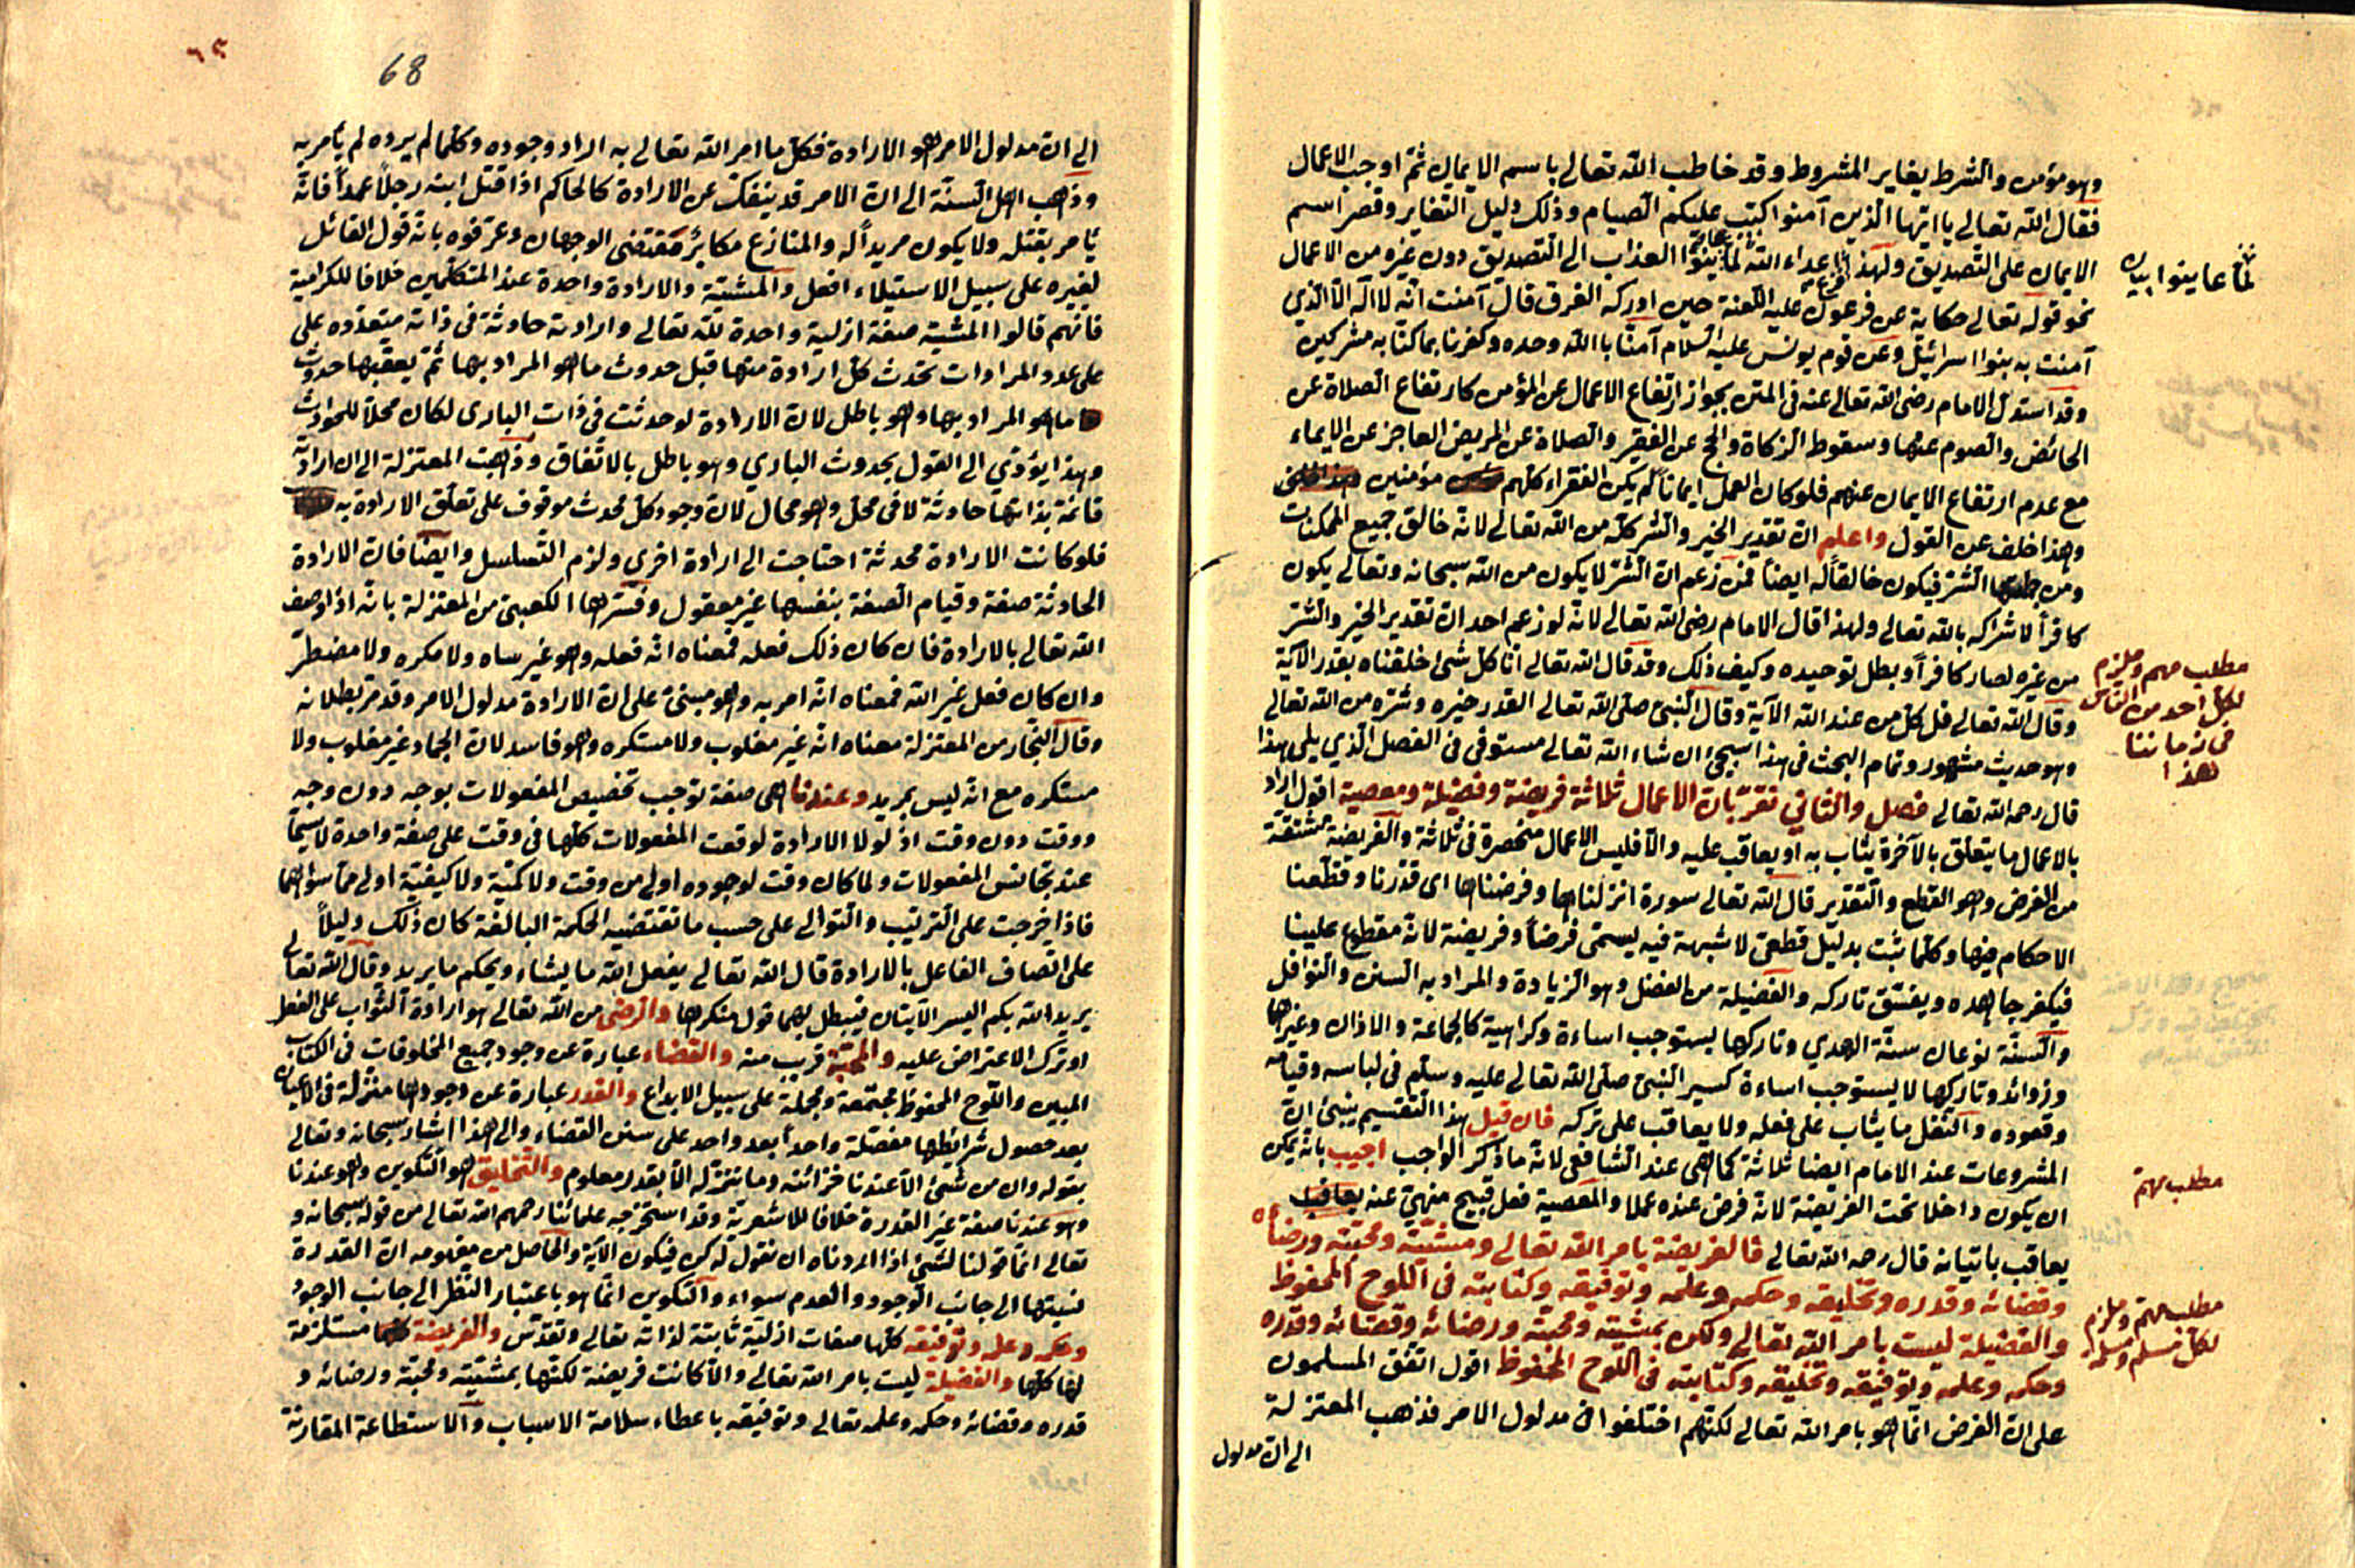 وهو مؤمن والشرط يغاير المشروط وقد خاطب الله تعالى باسم الايمان ثم اوجب الاعمال
فقال الله تعالى يا ايها الذين آمنوا كتب عليكم الصيام وذلك دليل التغاير وقصر اسم
الايمان على التصديق ولهذا اعداء الله لما عاينوا العذاب الى التصديق دون غيره من الاعمال
لما عاينوا بيان
نحو قوله تعالى حكاية عن فرعون عليه اللعنة حين ادركه الغرق قال آمنت انه لا اله الا الذي
آمنت به بنوا اسرائيل وعن قوم يونس عليه السلام آمنا بالله وحده وكفرنا بما كنا به مشركين
وقد استدل الامام رضى الله تعالى عنه فى المتن بجواز ارتفاع الاعمال عن المؤمن كارتفاع الصلاة عن
الحائض والصوم عنها وسقوط الزكاة والحج عن الفقير والصلاة عن المريض العاجز عن الايماء
مع عدم ارتفاع الايمان عنهم فلو كان العمل ايمانا لم يكن الفقراء كلهم مؤمنين
وهذا خلف عن القول واعلم ان تقدير الخير والشر كله من الله تعالى لانه خالق جميع الممكنات
ومن جملتها الشر فيكون خالقا له ايضا فمن زعم ان الشر لا يكون من الله سبحانه وتعالى يكون
كافرا لاشراكه بالله تعالى ولهذا قال الامام رضى الله تعالى لانه لو زعم احد ان تقدير الخير والشر
من غيره لصار كافرا وبطل توحيده وكيف ذلك وقد قال الله تعالى انا كل شئ خلقناه بقدر الآية
مطلب مهم وملزم
لكل احد من الناس
فى زماننا
هذا
وقال الله تعالى قل كل من عند الله الآية وقال النبى صلى الله تعالى القدر خيره وشره من الله تعالى
وهو حديث مشهور وتمام البحث فى هذا سيجئ ان شاء الله تعالى مستوفى فى الفصل الذي يلى هذا
قال رحمه الله تعالى فصل والثاني نقر بان الاعمال ثلاثة فريضة وفضيلة ومعصية اقول اراد
بالاعمال ما يتعلق بالآخرة يثاب به او يعاقب عليه والا فليس الاعمال منحصرة فى ثلاثة والفريضة مشتقة
من الفرض وهو القطع والتقدير قال الله تعالى سورة انزلناها وفرضناها اى قدرنا وقطعنا
الاحكام فيها وكلما ثبت بدليل قطعى لا شبهة فيه يسمى فرضا وفريضة لانه مقطوع علينا
فيكفر جاهده ويفسق تاركه والفضيلة من الفضل وهو الزيادة والمراد به السنن والنوافل
والسنة نوعان سنة الهدي وتاركها يستوجب اساءة وكراهية كالجماعة والاذان وغيرها
وزوائد وتاركها لا يستوجب اساءة كسير النبى صلى الله تعالى عليه وسلم فى لباسه وقيامه
وقعوده والنفل ما يثاب على فعله ولا يعاقب على تركه فان قيل هذا التقسيم ينبئ ان
المشروعات عند الامام ايضا ثلاثة كما هى عند الشافعى لانه ما ذكر الواجب اجيب بانه يمكن
مطلب مهم
ان يكون داخلا تحت الفريضة لانه فرض عنده عملا والمعصية فعل قبيح منهي عنه يعاقب
يعاقب باتيانه قال رحمه الله تعالى فالفريضة بامر الله تعالى ومشيته ومحبته ورضائه
وقضائه وقدره وتخليقه وحكمه وعلمه وتوفيقه وكتابته فى اللوح المحفوظ
والفضيلة ليست بامر الله تعالى ولكن بمشيته ومحبته ورضائه وقضائه وقدره
مطلب مهم وملزم
لكل مسلم ومسلمة
وحكمه وعلمه وتوفيقه وتخليقه وكتابته فى اللوح المحفوظ اقول اتفق المسلمون
على ان الفرض انما هو بامر الله تعالى لكنهم اختلفوا فى مدلول الامر فذهب المعتزلة
الى ان مدلول
٦٥
68
الى ان مدلول الامر هو الارادة فكل ما امر الله تعالى به اراد وجوده وكلما لم يرده لم يأمر به
وذهب اهل السنة الى ان الامر قد ينفك عن الارادة كالحاكم اذا قتل ابنه رجلا عمدا فانه
يأمر بقتله ولا يكون مريدا له والمنازع مكابر مقتضى الوجهان وعرفوه بانه قول القائل
لغيره على سبيل الاستيلاء افعل والمشيئة والارادة واحدة عند المتكلمين خلافا للكرامية
فانهم قالوا المشية صفة ازلية واحدة لله تعالى وارادته حادثة فى ذاته متعدده على
على عدد المرادات تحدث كل ارادة منها قبل حدوث ما هو المراد بها ثم يعقبها حدوث
ما هو المراد بها وهو باطل لان الارادة لو حدثت فى ذات البارى لكان محلا للحوادث
وهذا يؤدي الى القول بحدوث الباري وهو باطل بالاتفاق وذهبت المعتزلة الى ان ارادته
قائمة بذاتها حادثة لا فى محل وهو محال لان وجود كل محدث موقوف على تعلق الارادة به
فلو كانت الارادة محدثة احتاجت الى ارادة اخرى ولزم التسلسل وايضا فان الارادة
الحادثة صفة وقيام الصفة بنفسها غير معقول وفسرها الكعبى من المعتزلة بانه اذا وصف
الله تعالى بالارادة فان كان ذلك فعله فمعناه انه فعله وهو غير ساه ولا مكره ولا مضطر
وان كان فعل غير الله فمعناه انه امر به وهو مبنى على ان الارادة مدلول الامر وقد مر بطلانه
وقال النجار من المعتزلة معناه انه غير مغلوب ولا مستكره وهو فاسد لان الجماد غير مغلوب ولا
مستكره مع انه ليس بمريد وعندنا هى صفة توجب تخصيص المفعولات بوجه دون وجه
ووقت دون وقت اذ لولا الارادة لوقعت المفعولات كلها فى وقت على صفة واحدة لا سيما
عند تجانس المفعولات ولما كان وقت لوجوده اولى من وقت ولا كمية ولا كيفية اولى مما سواهما
فاذا خرجت على الترتيب والتوالى على حسب ما تقتضيه الحكمة البالغة كان ذلك دليلا
على اتصاف الفاعل بالارادة قال الله تعالى يفعل الله ما يشاء ويحكم ما يريد وقال الله تعالى
يريد الله بكم اليسر الآيتان فيبطل بهما قول منكرها والرضى من الله تعالى هو ارادة الثواب على الفعل
او ترك الاعتراض عليه والمحبة قريب منه والقضاء عبارة عن وجود جميع المخلوقات فى الكتاب
المبين واللوح المحفوظ مجتمعة ومجملة على سبيل الابداع والقدر عبارة عن وجودها منزلة فى الاعيان
بعد حصول شرائطها مفصلة واحدا بعد واحد على سنن القضاء والى هذا اشار سبحانه وتعالى
بقوله وان من شئ الا عندنا خزائنه وما ننزله الا بقدر معلوم والتخليق هو التكوين وهو عندنا
وهو عندنا صفة غير القدرة خلافا للاشعرية وقد استخرجه علمائنا رحمهم الله تعالى من قوله سبحانه و
تعالى انما قولنا لشئ اذا اردناه ان نقول له كن فيكون الآية والحاصل من مفهومه ان القدرة
نسبتها الى جانب الوجود والعدم سواء والتكوين انما هو باعتبار النظر الى جانب الوجود
وحكمه وعلمه وتوفيقه كلها صفات ازلية ثابتة لذاته تعالى وتقدس والفريضة مستلزمة
لها كلها والفضيلة ليست بامر الله تعالى والا كانت فريضة لكنها بمشيته ومحبته ورضائه و
قدره وقضائه وحكمه وعلمه تعالى وتوفيقه باعطاء سلامة الاسباب والاستطاعة المقارنة